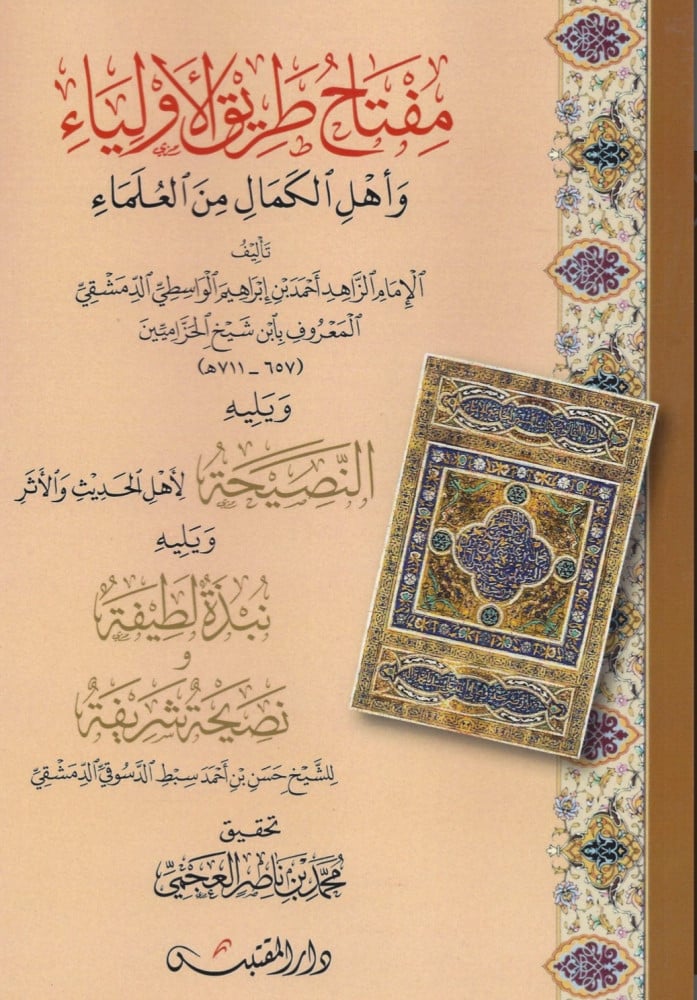 مِفْتَاحُ طَرِيقِ الأَوْلِيَاءِ
وَأَهْلِ الكَمَالِ مِنَ العُلَمَاءِ
تَأْلِيفُ
الإِمَامِ الزَّاهِدِ أَحْمَدَ بْنِ إِبْرَاهِيمَ الوَاسِطِيِّ الدِّمَشْقِيِّ
المَعْرُوفِ بِابْنِ شَيْخِ الحَزَّامِيِّينَ
(٦٥٧ - ٧١١هـ)
وَيَلِيهِ
النَّصِيحَةُ لِأَهْلِ الحَدِيثِ وَالأَثَرِ
وَيَلِيهِ
نُبْذَةٌ لَطِيفَةٌ
و
نَصِيحَةٌ شَرِيفَةٌ
لِلشَّيْخِ حَسَنِ بْنِ أَحْمَدَ سِبْطِ الدَّسُوقِيِّ الدِّمَشْقِيِّ
تحقيق
مُحَمَّد بْن نَاصِر العَجْمِيّ
دار المقتبس